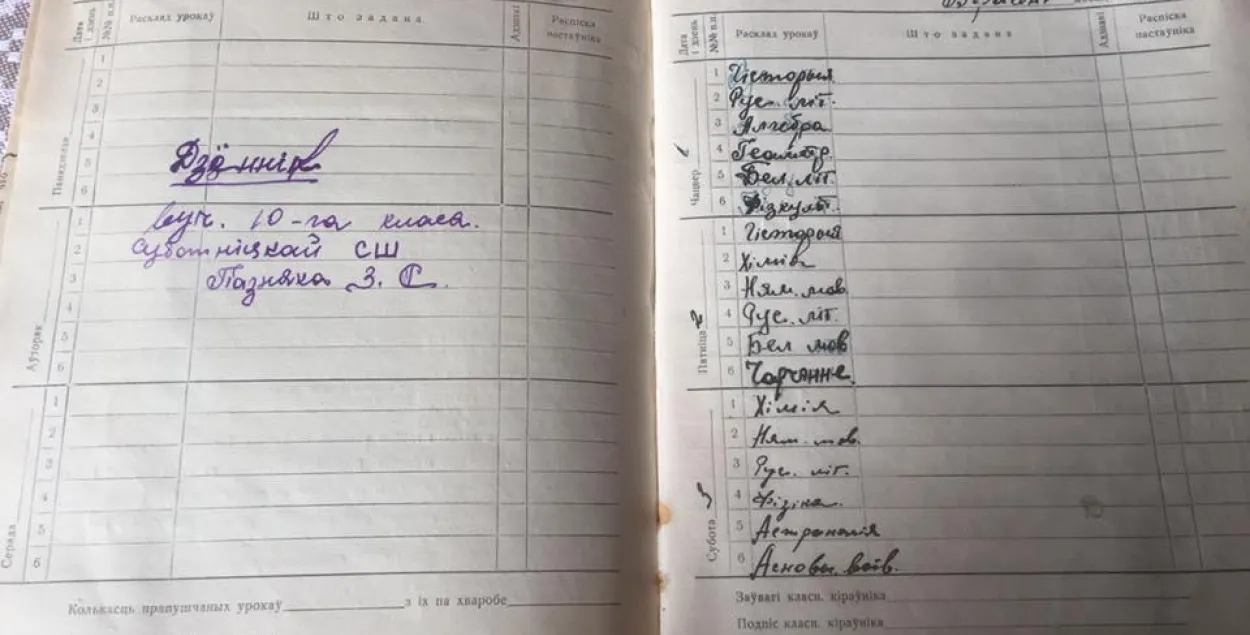 Дата і дзень
№№ п.п.
Расклад урокаў
Што задана
Адзнакі
Распіска настаўніка
Панядзелак
1
2
3
4
5
6
Дзённік
Аўторак
1
2
3
4
5
6
вуч. 10-га класа.
Суботніцкай СШ
Пазняка З. С.
Серада
1
2
3
4
5
6
Колькасць прапушчаных урокаў
з іх па хваробе
Дата і дзень
№№ п.п.
Расклад урокаў
Што задана
Адзнакі
Распіска настаўніка
Чацвер 1
1 Гісторыя
2 Рус. літ.
3 Алгебра
4 Геаметр.
5 Бел. літ.
6 Фізкульт.
Пятніца 2
1 Гісторыя
2 Хімія
3 Ням. мов.
4 Рус. літ.
5 Бел мов
6 Чарчэнне.
Субота 3
1 Хімія
2 Ням. мов.
3 Рус. літ.
4 Фізіка.
5 Астраномія
6 Асновы. вытв.
Заўвагі класн. кіраўніка
Подпіс класн. кіраўніка